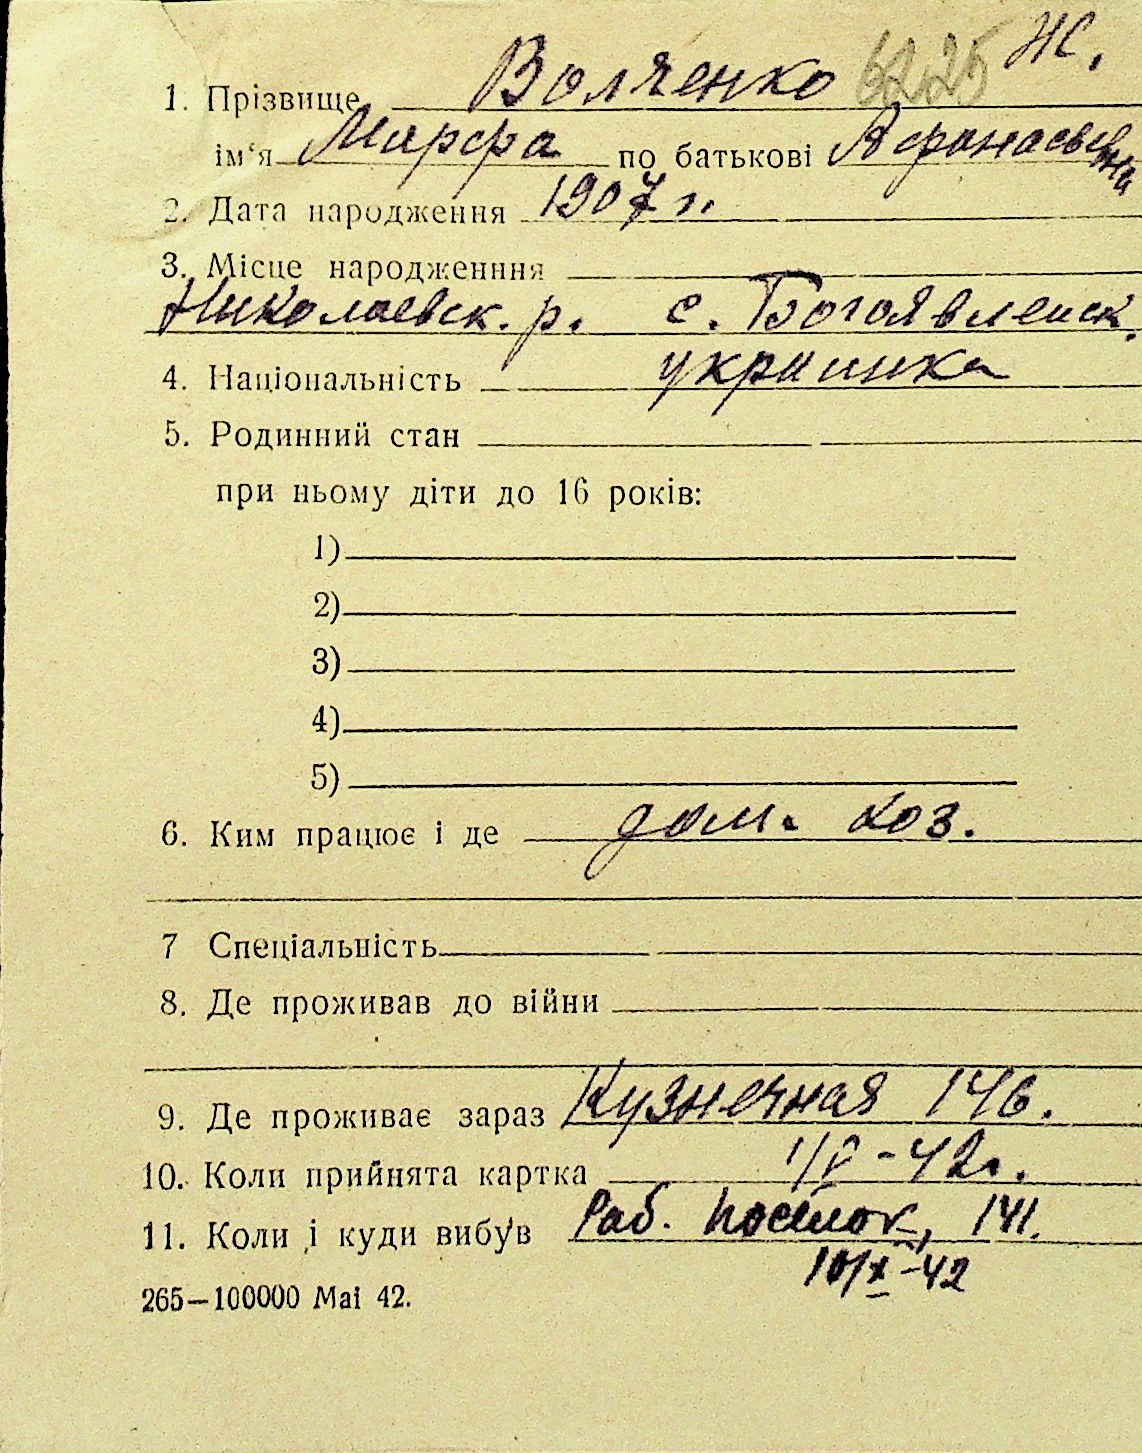 Ж.
1. Прізвище Волченко 6225
ім'я Марфа по батькові Афанасьевна
2. Дата народження 1907 г.
3. Місце народженння
Николаевск. р. с. Богоявленск.
4. Національність украинка
5. Родинний стан
при ньому діти до 16 років:
1)
2)
3)
4)
5)
6. Ким працює і де дом. хоз.
7 Спеціальність
8. Де проживав до війни
9. Де проживає зараз Кузнечная 146.
10. Коли прийнята картка 1/V-42г.
11. Коли і куди вибув Раб. поселок, 141.
10/X-42
265—100000 Mai 42.